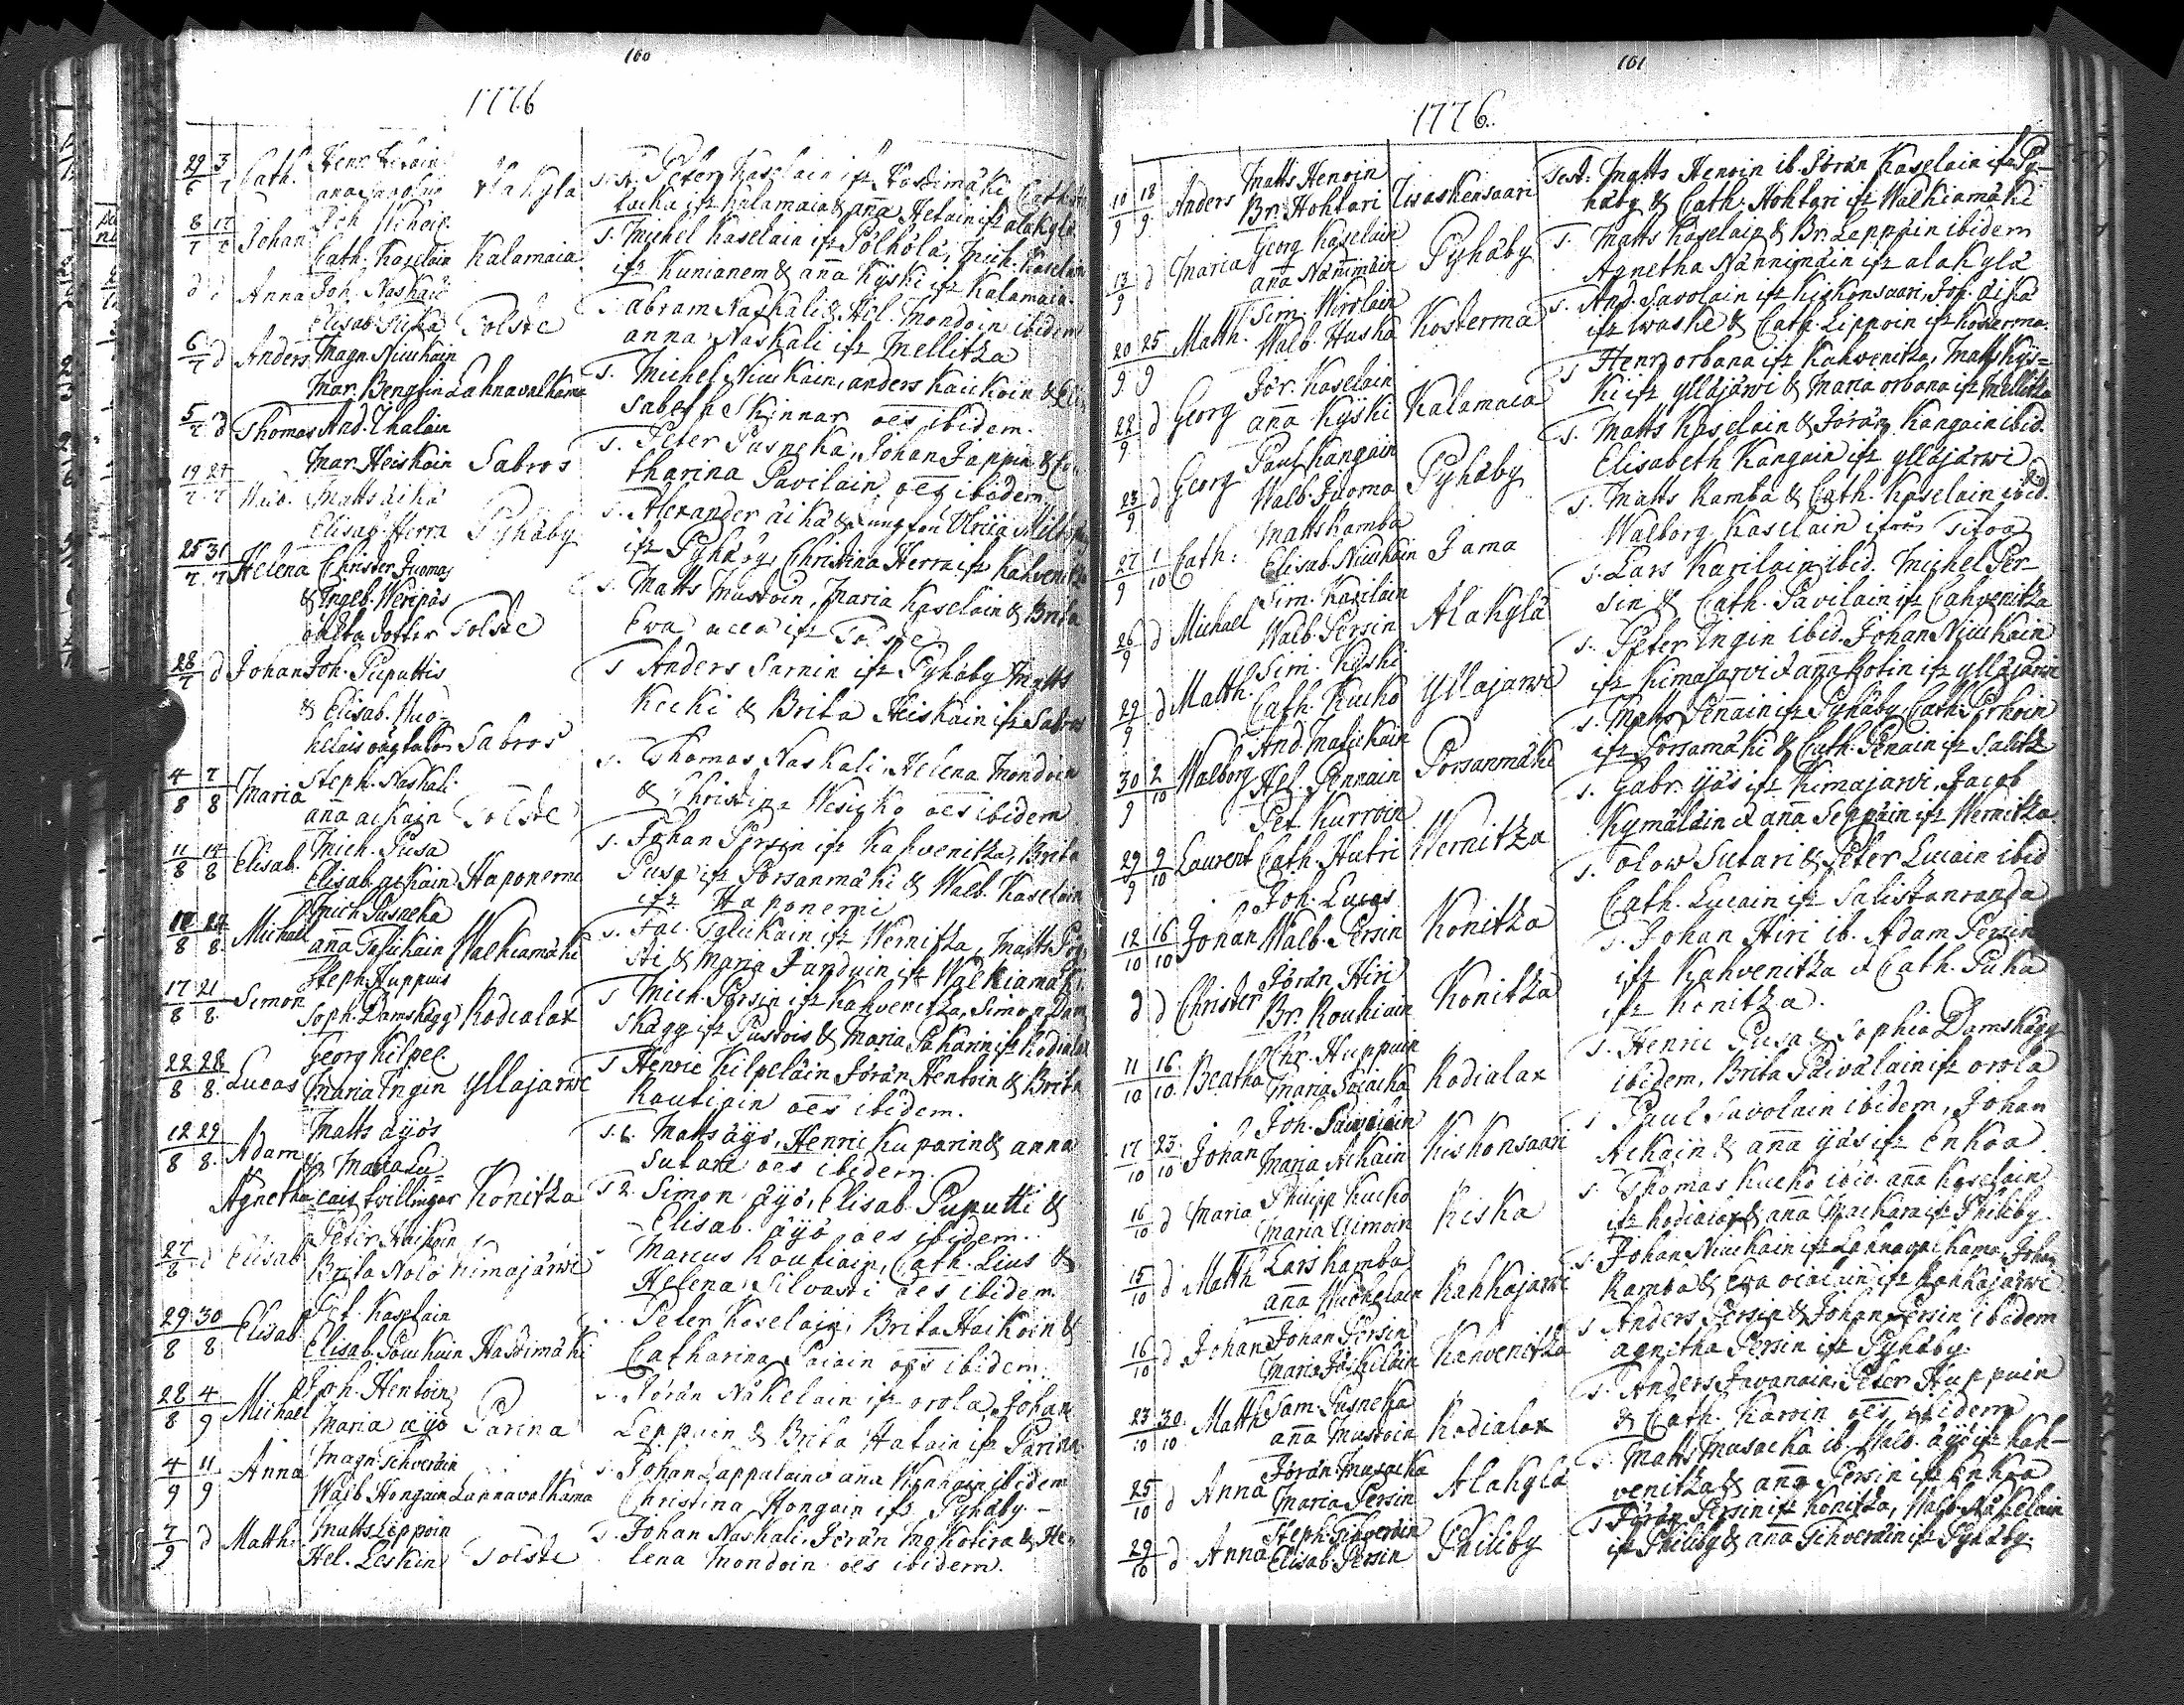 160
1776
29/6 3/7 Cath. Henr. Hirvoin
ana Savolain Alakyla
S. Peter Kaselain ifr Hastimäki Cath.
ifr Kalamaia & aña Hetain ifr alakylä
8/7 12/7 Johan Joh.
Cath. Kaselain Kalamaia
S. Michel Kaselain ifr Pölhölä, Mich. Kaselain
ifr Kunianem & aña Kyski ifr Kalamaia
d d Anna Joh. Naskali
Elisab. Tolste
S. abram Naskali & Hel. Mondoin ibidem
anna Naskali ifr Mellitza
6/7 d Anders Magn. Niuukain
Mar. Bengtin Lahnavalkama
S. Michel Niuukain, anders Kaickoin & Eli-
sabetha Skinnar oes ibidem.
5/7 d Thomas And. Ihalain
Mar. Heiskain Sabros
S. Peter Pusneka, Johan Jappin & Ca-
tharina Pavilain oes ibidem
19/7 24/7 Matts äikä
Elisab. Herra Pyhäby
S. Alexander äikä & Ulrica
ifr Pyhäby, Christina Herra ifr Kahvenitza
25/7 31/7 Helena Christer Juomas
& Ingeb. Weripäs
äkta dotter Tolste
S. Matts Mustoin, Maria Kaselain & Brita
Ewa ifr Tolste
28/7 d Johan Joh. Puputtis
& Elisab. Muo-
helais oägta son Sabros
S Anders Sarnin ifr Pyhäby Matts
Kecki & Brita Heiskain ifr Sabros
4/8 7/8 Maria Steph. Naskali
aña aikain Tolste
S. Thomas Naskali Helena Mondoin
& Christina Wesicko oes ibidem
11/8 14/8 Elisab. Mich. Pusa
Elisab. aikain Haponemi
S. Johan Persin ifr Kahvenitza, Brita
Pusa ifr Porsanmäki & Walb. Kaselain
ifr Haponemi
18/8 24/8 Michael Mich Pusneka
aña Walkiamäki
S. Jac. ifr Wernitza, Matts
& Maria Janduin ifr Walkiamäki
17/8 21/8 Simon Steph. Huppuis
Soph. Damskägg Kodialax
S Mich. Persin ifr Kahvenitza, Simon Dam-
skägg ifr Pustois & Maria Pakarin ifr Kodialax
22/8 28/8 Lucas Georg Kilpel.
Maria Ingin Yllajarwi
S Henric Kilpeläin Jöran Hentoin & Brita
Rautiain oes ibidem.
12/8 29/8 Adam Matts äyjös
& Maria Lu-
Agnetha cais tvillingar Konitza
S. 1. Matts äyjö, Henric Kuparin & anna
Sutari oes ibidem.
S 2. Simon äyjö, Elisab. Puputti &
Elisab. äyjö oes ibidem.
27/8 d Elisab Peter Haikoin
Brita Nolo Kimajärwi
Marcus Routiain, Cath. Lius &
Helena Silvasti oes ibidem.
29/8 30/8 Elisab Pet. Kaselain
Elisab. Hastimäki
S. Peter Kaselain, Brita Haikoin &
Catharina Paiain oes ibidem.
28/8 4/9 Michael Joh. Hentoin
Maria äyjö Parina
S. Jöran Näkelain ifr orola, Johan
Leppain & Brita Hatain ifr Parina
4/9 11/9 Anna Magn. Tihveräin
Walb Hongain Lannavalkama
S. Johan Lappalain & aña ibidem
Christina Hongain ifr Pyhäby.
7/9 d Matth. Matts Leppoin
Hel. Leskin Tolste
S. Johan Naskali, Jöran & He-
lena Mondoin oes ibidem.
161
1776.
10/9 18/9 Anders Matts Henoin
Br. Hohtari Iivaskensaari
Test: Matts Henoin ib. Jöran Kaselain ifr Py-
häby & Cath. Hohtari ifr Walkiamäki
13/9 d Maria Georg Kaselain
aña Nännimäin Pyhäby
S. Matts Kaselain & Br. Leppäin ibidem
Agnetha Nännimäin ifr alakylä
20/9 25/9 Matth. Sim. Wirolain
Walb. Husha Kosterma
S. And. Savolain ifr Kiskonsaari, Joh. äikä
ifr Iwaske & Cath. Lippoin ifr Kosterma.
22/9 d Georg Jör. Kaselain
aña Kyski Kalamaia
S Henr orbana ifr Kahvenitza, Matts Kys-
ki ifr yllajärwi & Maria orbana ifr Mellitza
23/9 d Georg Paul Kangain
Walb. Juoma Pyhäby
S. Matts Kaselain & Jöran Kangain ibid.
Elisabeth Kangain ifr yllajärwi
27/9 1/10 Cath: Matts Ramba
Elisab. Niuukain Jama
S. Matts Ramba & Cath. Kaselain ibid.
Walborg Kaselain ifrån Titoa
26/9 d Michael Sim. Karilain
Walb. Persin Alakylä
S. Lars Karilain ibid. Michel Per-
sin & Cath. Pavilain ifr Cahvenitza
29/9 d Matth. Sim. Kyski
Cath. Kucko Yllajarwi
S. Peter Ingin ibid. Johan Niuukain
ifr Kimajarvi & aña Potin ifr yllajarwi
30/9 2/10 Walborg And. Matickain
Hel. Pennain Porsanmäki
S. Matts Penain ifr Pyhäby, Cath. Perhoin
ifr Porsamäki & Cath. Penain ifr Salitz
29/9 9/10 Laurent Pet Kurvoin
Cath. Hutri Wernitza
S. Gabr. yjäs ifr Kimajarvi, Jacob
Kymäläin & aña Seppäin ifr Wernitza.
12/10 16/10 Johan Joh. Lucas
Walb. Persin Konitza
S. olow Sutari & Peter Lucain ibid
Cath. Lucain ifr Salistanranda
d d Christer Jöran Hiri
Br. Roukiain Konitza
S. Johan Hiri ib. Adam Persin
ifr Kahvenitza & Cath. Puka
ifr Konitza.
11/10 16/10 Beatha Chr. Huppuin
Maria Kodialax
S. Henric Pusa & Sophia Damskägg
ibidem, Brita Päiväläin ifr orola
17/10 23/10 Johan Joh. Savolain
Maria Aikain Kiskonsaari
S Paul Savolain ibidem, Johan
Aikain & aña yjäs ifr Enkoa.
16/10 d Maria Philipp Kucko
Maria Riska
S. Thomas Kucko ibid. aña Kaselain
ifr Kodialax & aña Mackara ifr Philiby.
15/10 d Matth Lars Kamba
aña Muohelain Kahkajarwi
S. Johan Niuukain ifr Lahnavalkama, Johan
Ramba & Ewa ifr Kahkajärwi
16/10 d Johan Johan Persin
Maria Kahvenitza
S Anders Persin & Johan Persin ibidem
agnitha Persin ifr Pyhäby.
23/10 30/10 Matth Sam. Pusneka
aña Mustoin Kodialax
S. Anders Javanain, Peter Huppuin
& Cath. Karoin oes ibidem
25/10 d Anna Jöran Musacka
Maria Persin Alakylä
S. Matts Musacka ib. Walb. äyjö ifr Kah-
venitza & aña Persin ifr Enkoa
29/10 d Anna Steph. Tihveräin
Elisab. Persin Philiby
S Jöran Persin ifr Konitza, Walb. Näkelain
ifr Philiby & aña Tihveräin ifr Pyhäby.